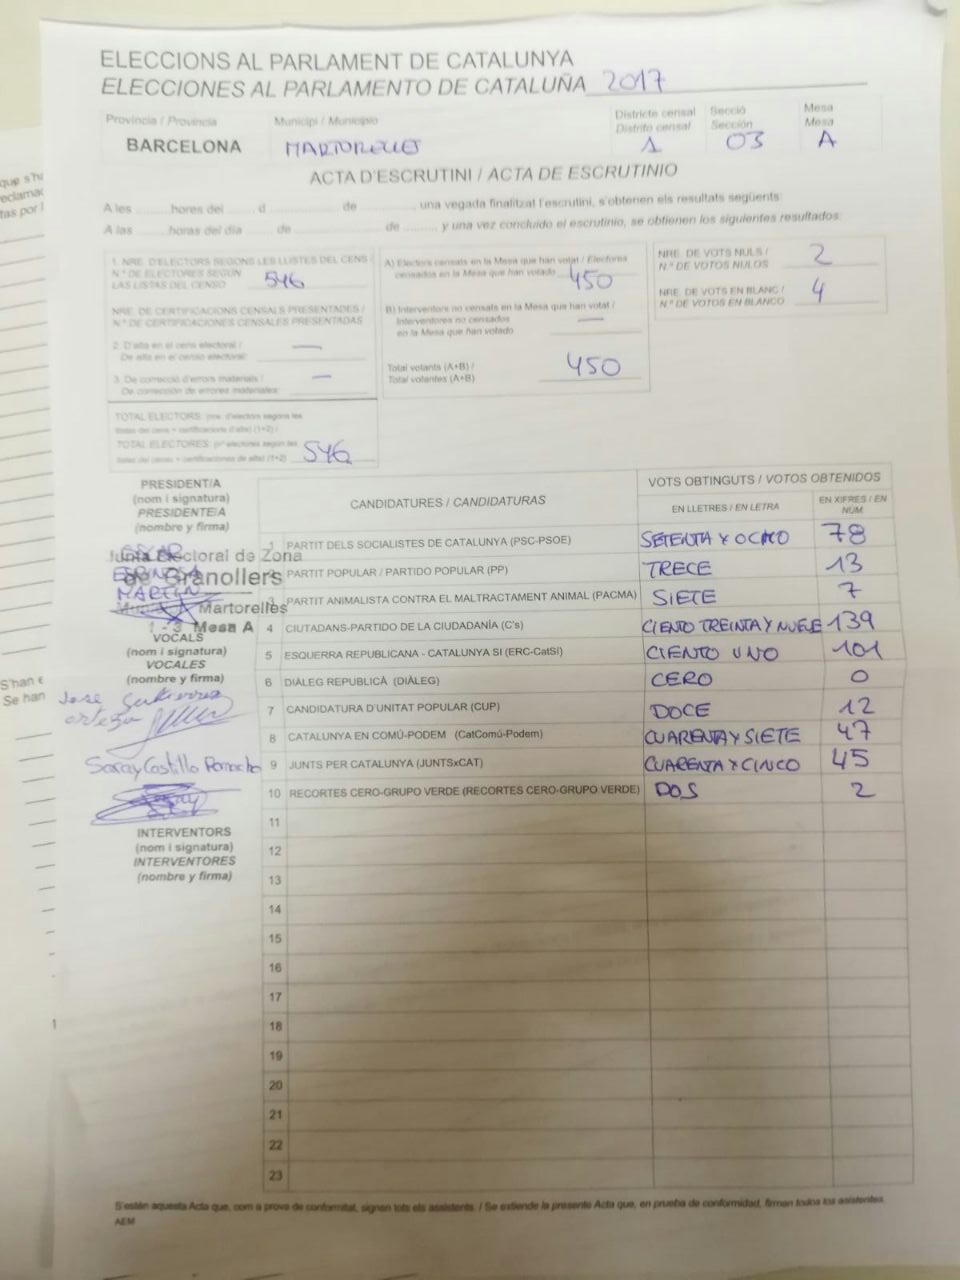 ELECCIONS AL PARLAMENT DE CATALUNYA
ELECCIONES AL PARLAMENTO DE CATALUÑA 2017
Província / Provincia
BARCELONA
Municipi / Municipio
MARTORELLES
Districte censal
Distrito censal
1
Secció
Sección
03
Mesa
Mesa
A
ACTA D'ESCRUTINI / ACTA DE ESCRUTINIO
A les ........ hores del ...... d .................. de ..............., una vegada finalitzat l'escrutini, s'obtenen els resultats següents:
A las ........ horas del día ...... de .................. de ......... y una vez concluido el escrutinio, se obtienen los siguientes resultados:
1. NRE. D'ELECTORS SEGONS LES LLISTES DEL CENS /
N.º DE ELECTORES SEGÚN
LAS LISTAS DEL CENSO 546
NRE. DE CERTIFICACIONS CENSALS PRESENTADES /
N.º DE CERTIFICACIONES CENSALES PRESENTADAS
2. D'alta en el cens electoral / —
De alta en el censo electoral:
3. De correcció d'errors materials / —
De corrección de errores materiales:
TOTAL ELECTORS: (nre. d'electors segons les
llistes del cens + certificacions d'alta) (1+2) /
TOTAL ELECTORES: (nº electores según las
listas del censo + certificaciones de alta) (1+2) 546
A) Electors censats en la Mesa que han votat / Electores
censados en la Mesa que han votado 450
B) Interventors no censats en la Mesa que han votat /
Interventores no censados —
en la Mesa que han votado
Total votants (A+B) /
Total votantes (A+B) 450
NRE. DE VOTS NULS /
N.º DE VOTOS NULOS 2
NRE. DE VOTS EN BLANC /
N.º DE VOTOS EN BLANCO 4
PRESIDENT/A
(nom i signatura)
PRESIDENTE/A
(nombre y firma)
Junta Electoral de Zona
de Granollers
MARTIN
Martorelles
1 - 3 Mesa A
VOCALS
(nom i signatura)
VOCALES
(nombre y firma)
Jose Gutierrez
ortega
Saray Castillo
INTERVENTORS
(nom i signatura)
INTERVENTORES
(nombre y firma)
CANDIDATURES / CANDIDATURAS
VOTS OBTINGUTS / VOTOS OBTENIDOS
EN LLETRES / EN LETRA
EN XIFRES / EN
NUM
1 PARTIT DELS SOCIALISTES DE CATALUNYA (PSC-PSOE) SETENTA Y OCHO 78
2 PARTIT POPULAR / PARTIDO POPULAR (PP) TRECE 13
3 PARTIT ANIMALISTA CONTRA EL MALTRACTAMENT ANIMAL (PACMA) SIETE 7
4 CIUTADANS-PARTIDO DE LA CIUDADANÍA (C's) CIENTO TREINTA Y NUEVE 139
5 ESQUERRA REPUBLICANA - CATALUNYA SI (ERC-CatSI) CIENTO UNO 101
6 DIÀLEG REPUBLICÀ (DIÀLEG) CERO 0
7 CANDIDATURA D'UNITAT POPULAR (CUP) DOCE 12
8 CATALUNYA EN COMÚ-PODEM (CatComú-Podem) CUARENTA Y SIETE 47
9 JUNTS PER CATALUNYA (JUNTSxCAT) CUARENTA Y CINCO 45
10 RECORTES CERO-GRUPO VERDE (RECORTES CERO-GRUPO VERDE) DOS 2
11
12
13
14
15
16
17
18
19
20
21
22
23
S'estén aquesta Acta que, com a prova de conformitat, signen tots els assistents. / Se extiende la presente Acta que, en prueba de conformidad, firman todos los asistentes.
AEM